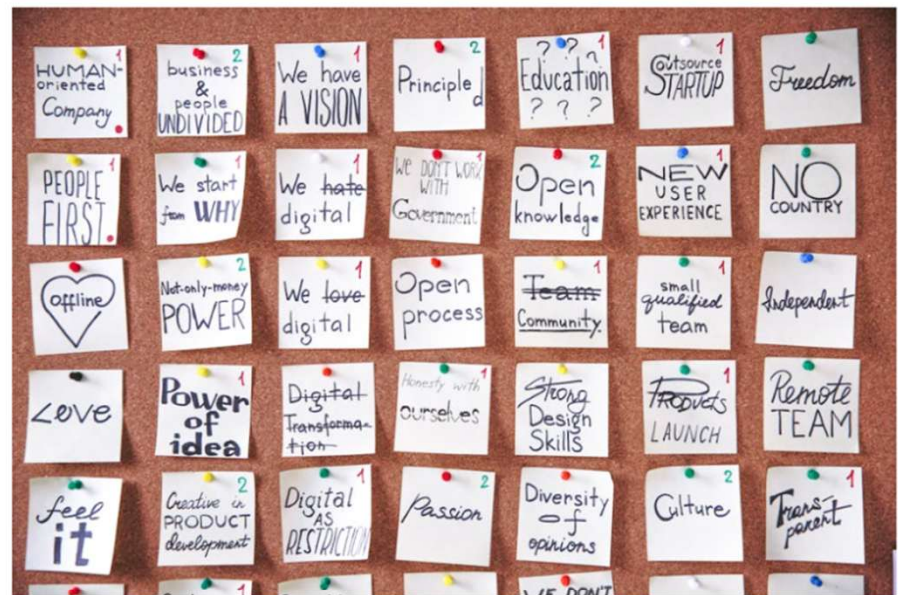 1
HUMAN-
oriented
Company
2
business
&
people
UNDIVIDED
1
We have
A VISION
2
Principled
1
? ? ?
Education
? ? ?
1
Outsource
STARTUP
Freedom
1
PEOPLE
FIRST
1
We start
from WHY
1
We hate
digital
1
WE DON'T WORK
WITH
Government
2
Open
knowledge
1
NEW
USER
EXPERIENCE
NO
COUNTRY
offline
2
Not-only-money
POWER
1
We love
digital
Open
process
1
Team
Community
1
small
qualified
team
Independent
Love
1
Power
of
idea
Digital
Transforma-
tion
1
Honesty with
ourselves
Strong
Design
Skills
1
Products
LAUNCH
Remote
TEAM
feel
it
2
Creative in
PRODUCT
development
1
Digital
AS
RESTRICTION
2
Passion
Diversity
of
opinions
2
Culture
1
Trans-
parent
1
1
WE DON'T